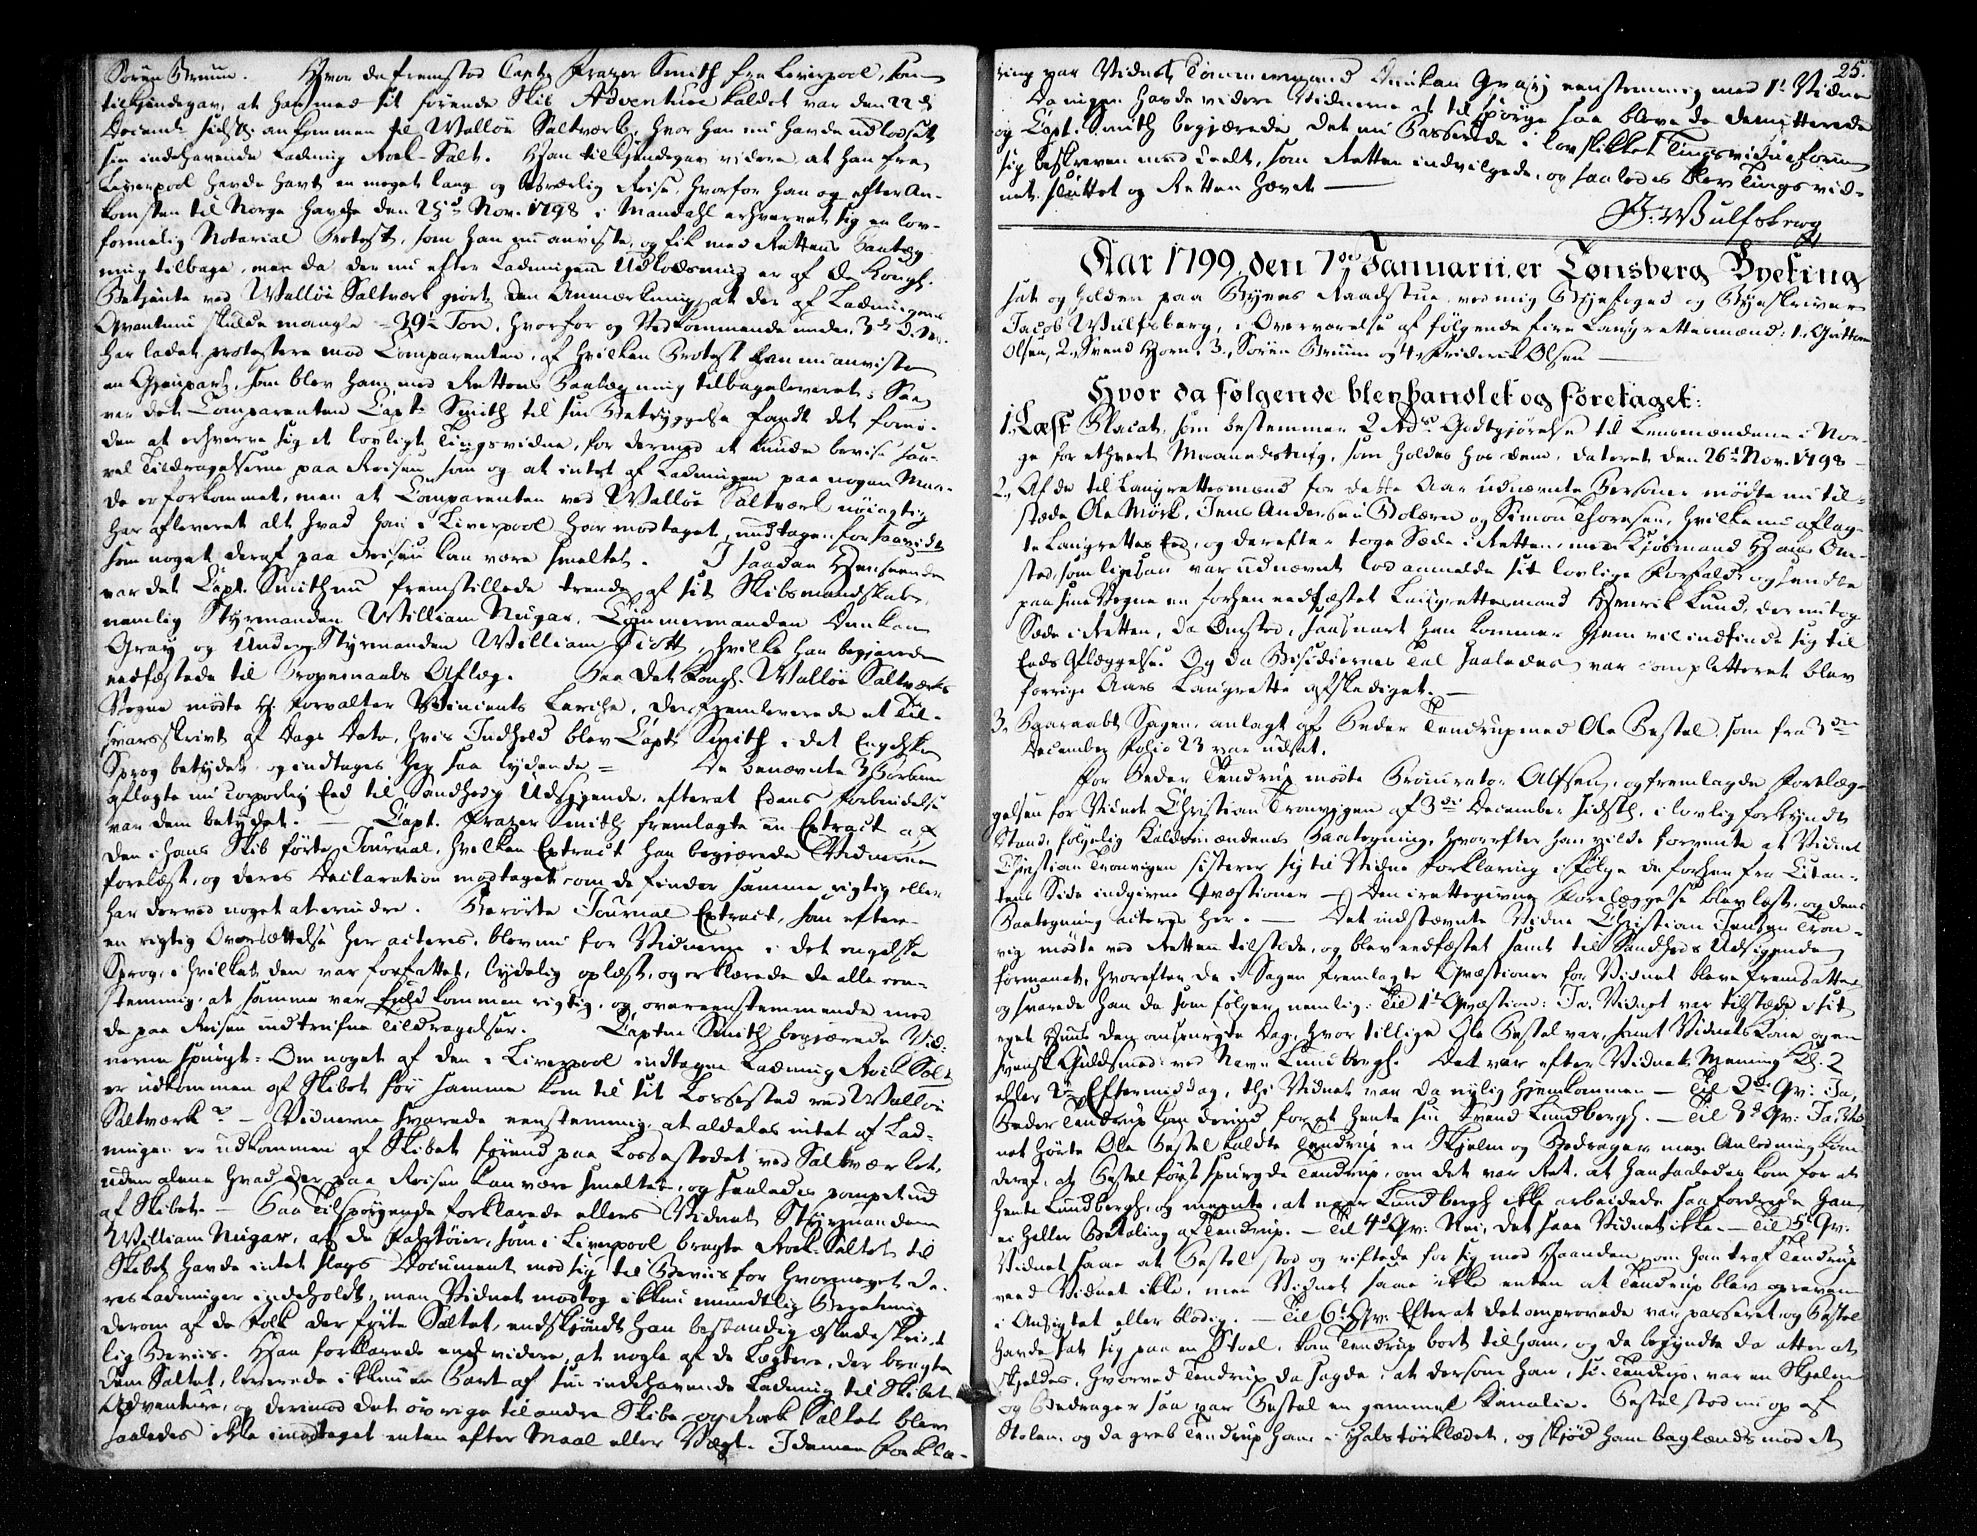 Søren Bruun. Hvor da fremstod Capt. Frazer Smith fra Liverpool, som
tilkiendegav, at han med sit førende Skib Adventure kaldet var den 22de
Decembr. sidstl. ankommen til Walløe Saltværk, hvor han nu havde udlosset
sin indehavende Ladning Rock-Salt. Han tilkiendegav videre at han fra
Liverpool havde havt en meget lang og besværlig Reise, hvorfor han og efter An-
komsten til Norge havde den 25de Nov. 1798 i Mandahl erhvervet sig en lov-
formelig Notarial Protest, som han nu anviste, og fik med Rettens Paateg-
ning tilbage, men da der nu efter Ladningens Udlosning er af de Kongl.
Betjente ved Walløe Saltværk giort den Anmærkning, at der af Ladningens
Qvantum skulde mangle 39½ Ton, hvorfor og Vedkommende under 3de d. M.
har ladet protestere mod Comparenten, af hvilken Protest han nu anviste
en Gjenpart, som blev ham med Rettens Paategning tilbageleveret; Saa
var det Comparenten Capt. Smith til sin Betryggelse fandt det forne-
den at erhverve sig et lovligt Tingsvidne, for dermed at kunde bevise saa-
vel Tildragelserne paa Reisen som og at intet af Ladningen paa nogen Maa-
de er forkommet, men at Comparenten ved Walløe Saltværk nøiagtig
har afleveret alt hvad han i Liverpool har modtaget, undtagen forsaavidt
som noget deraf paa Reisen kan være smeltet. I saadan Henseende
var det Capt. Smith nu fremstillede trende af sit Skibsmandskab,
nemlig Styrmanden William Nugar, Tømmermanden Dunkan
Gray og Under Styrmanden William Scott, hvilke han begjærede
eedfæstede til Provemaals Aflæg. Paa det Kongl. Walløe Saltværks
Vegne mødte Hr. Forvalter Vincents Lerche, der fremleverede et Til-
svarsskrivt af Dags Dato, hvis Indhold blev Capt. Smith i det Engelske
Sprog betydet, og indtages her saa lydende = De benævnte 3 Personer
aflagte nu corporlig Eed til Sandheds Udsigende, efterat Edens Forbindelse
var dem betydet. — Capt. Frazer Smith fremlagte en Extract af
den i hans Skib førte Journal, hvilken Extract han begjærede Vidnerne
forelæst, og deres Declaration modtaget om de finder samme rigtig eller
har derved noget at erindre. Berørte Journal Extract, som efter
en rigtig Oversættelse her acteres, blev nu for Vidnerne i det engelske
Sprog, i hvilket den var forfattet, lydelig oplæst, og erklærede de alle een-
stemmig, at samme var fuldkommen rigtig, og overeensstemmende med
de paa Reisen indtrufne Tildragelser. Captn Smith begjærede Vid-
nerne spurgt: Om noget af den i Liverpool indtagne Ladning Rock Salt
er udkommen af Skibet før samme kom til sit Lossested ved Walløe
Saltværk? — Vidnerne svarede eenstemmig, at aldeles intet af Lad-
ningen er udkommen af Skibet førend paa Lossestedet ved Saltværket,
uden alene hvad der paa Reisen kan være smeltet, og saaledes pompet ud
af Skibet. — Paa Tilspørgende forklarede ellers Vidnet Styrmanden
William Nugar, at de Fartøier, som i Liverpool bragte Rock-Saltet til
Skibet havde intet slags Document med sig til Beviis for hvormeget de-
res Ladninger indeholdt, men Vidnet modtog ikkun mundtlig Beretning
derom af de Folk der førte Saltet, endskjøndt han bestandig æskede skrivt-
lig Beviis. Han forklarede end videre, at nogle af de Lægtere, der bragte
dem Saltet, leverede ikkun en Part af sin indehavende Ladning til Skibet
Adventure, og derimod det øvrige til andre Skibe, og Rock Saltet blev
saaledes ikke imodtaget enten efter Maal eller Vægt. I denne Forkla-
25.
ring var Vidnet Tømmermand Dunkan Gray eenstemmig med 1te Vidne
Da ingen havde videre Vidnerne at tilspørge saa bleve de demitterede
og Capt. Smith begjærede det nu Passerede i lovskikket Tingsvidneform
sig beskreven med deelt, som Retten indvilgede, og saaledes blev Tingsvid-
net sluttet og Retten hævet —
J. Wulfsberg
Aar 1799, den 7de Januarii, er Tønsberg Byeting
sat og holden paa Byens Raadstue, ved mig Byefoged og Byeskriver
Jacob Wulfsberg, i Overværelse af følgende fire Laugrettesmænd: 1. Guttorm
Olsen, 2. Svend Horn. 3. Søren Bruun og 4. Friderik Olsen —
Hvor da følgende blev handlet og foretaget:
1. Læst Placat, som bestemmer 2 Rds. Godtgjørelse til Lensmændene i Nor-
ge for ethvert Maanedsting, som holdes hos dem, dateret den 26de Nov. 1798 —
2. Af de til Laugrettesmænd for dette Aar udnævnte Personer mødte nu til-
stæde Ole Mørk, Jens Andersen Bolærn og Simon Thoresen, hvilke nu aflag-
te Laugrettes Eed, og derefter toge Sæde i Retten, men Kjøbmand Hans Om-
sted, som ligesaa var udnævnt lod anmelde sit lovlige Forfald og sendte
paa sine Vegne en forhen eedfæstet Laugrettesmand Henrik Lund, der nu tog
Sæde i Retten, da Omsted, saasnart han kommer hjem vil indfinde sig til
Eeds Aflæggelse. Og da Bisidernes Tal saaledes var completteret blev
forrige Aars Laugrette afskediget. —
3. Paaraabt Sagen, anlagt af Peder Tendrup med Ole Bestel, som fra 3die
December Folio 23 var udsat.
For Peder Tendrup mødte Procurator Alfsen, og fremlagde Forelæg-
gelsen for Vidnet Christian Tronvigen af 3die December sidstl. i lovlig forkyndt
Stand, følgelig Kaldsmændenes Paategning, hvorefter han vilde forvente at Vidnet
Christian Tronvigen sisterer sig til Vidne Forklaring ifølge de forhen fra Citan-
tens Side indgivne Qvæstioner — Den irettegivne Forelæggelse blev læst, og dens
Paategning acteres her. — Det indstævnte Vidne Christian Jensen Tron-
vig mødte ved Retten tilstede, og blev eedfæstet samt til Sandheds Udsigende
formanet, hvorefter de i Sagen fremlagte Qvæstioner for Vidnet bleve fremsatte
og svarede han da som følger nemlig: Til 1te Qvæstion: Ja, Vidnet var tilstæde i sit
eget Huus den omspurgte Dag, hvor tillige Ole Bestel var, samt Vidnets Kone og en
svensk Guldsmed ved Navn Lundbergh. Det var efter Vidnets Mening Kl. 2
eller 3 Eftermiddag, thi Vidnet var da nylig hjemkommen — Til 2de Qv: Ja,
Peder Tendrup kom derind for at hente sin Svend Lundbergh. — Til 3de Qv: Ja, Vid-
net hørte Ole Bestel kaldte Tendrup en Skjelm og Bedrager men Anledning kom
deraf, at Bestel først spurgde Tendrup, om det var Ret, at han saaledes kom for at
hente Lundbergh, og meente, at naar Lundbergh ikke arbeidede saa fordrede han
ei heller Betaling af Tendrup. — Til 4de Qv: Nei, det saae Vidnet ikke. — Til 5te Qv:
Vidnet saae at Bestel stod og viftede for sig med Haanden, om han traf Tendrup
veed Vidnet ikke, men Vidnet saae ikke enten at Tendrup blev opreven
i Ansigtet eller blodig. — Til 6te Qv: Efterat det omprovede var passeret, og Bestel
havde sat sig paa en Stoel, kom Tendrup bort til ham, og de begyndte da atter at
skjeldes, hvorved Tendrup da sagde, at dersom han, sc: Tendrup, var en Skjelm
og Bedrager saa var Bestel en gammel Kanalie. Bestel stod nu op af
Stolen, og da greb Tendrup ham i Halstørklædet, og skjød ham baglænds mod et